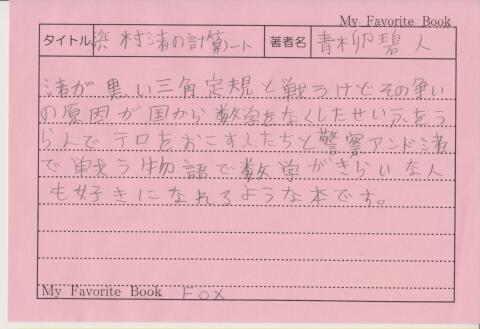 My Favorite Book
タイトル 浜村渚の計算ノート 著者名 青柳碧人
渚が黒い三角定規と戦うけどその争い
の原因が国から数学をなくしたせい
ら人でテロをおこす人たちと警察アンド渚
で戦う物語で数学がきらいな人
も好きになれるような本です。
My Favorite Book FOX